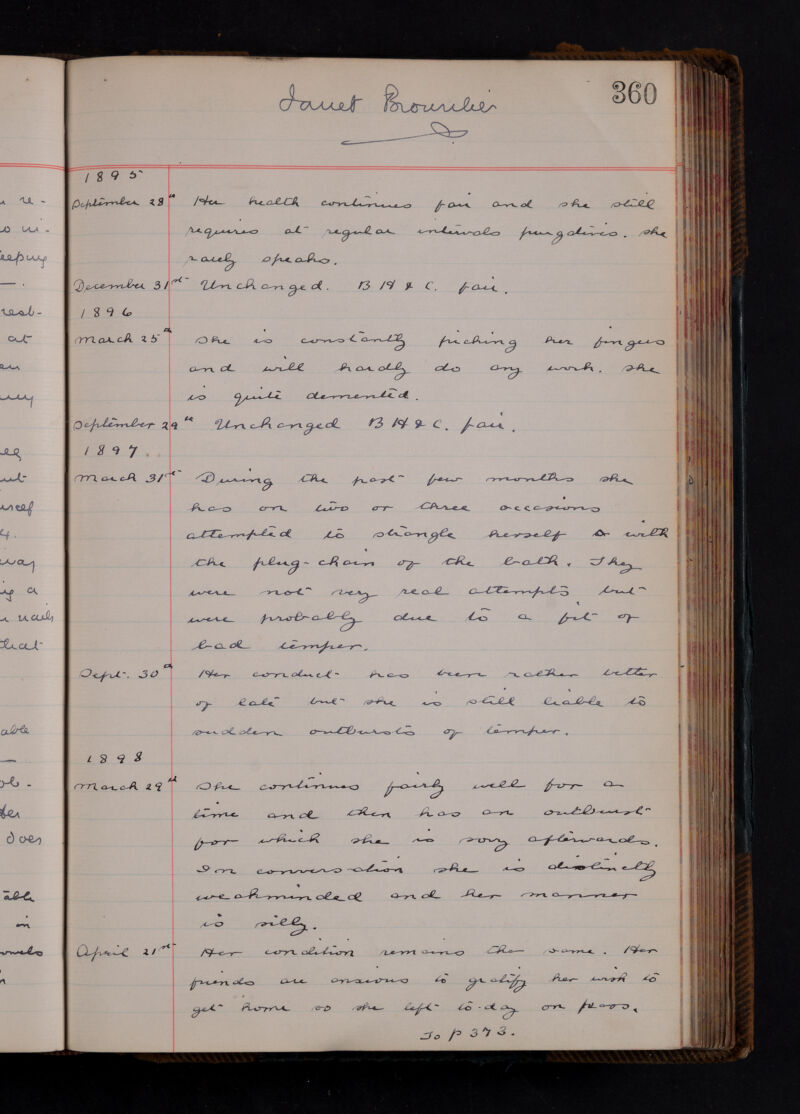 360
Janet Brownlie
1895
September 28th Her health continues fair and she still
requires at regular intervals purgatives. She
rarely speaks.
December 31st Unchanged. B H & C. fair.
1896
March 25th She is constantly picking her fingers
and will hardly do any work. She
is quite demented.
September 29th Unchanged B H & C. fair.
1897
March 31st During the past few months she
has on two or three occasions
attempted to strangle herself with
the plug-chain of the bath. They
were not very real attempts but
were probably due to a fit of
bad temper.
Sept. 30th Her conduct has been rather better
of late but she is still liable to
sudden outbursts of temper.
1898
March 29th She continues fairly well for a
time and then has an outburst
for which she is sorry afterwards.
In conversation she is distinctly
weakminded and her manner
is silly.
April 21st Her condition remains the same. Her
friends are anxious to gratify her wish to
get home so she left to-day on pass.
To p 373.